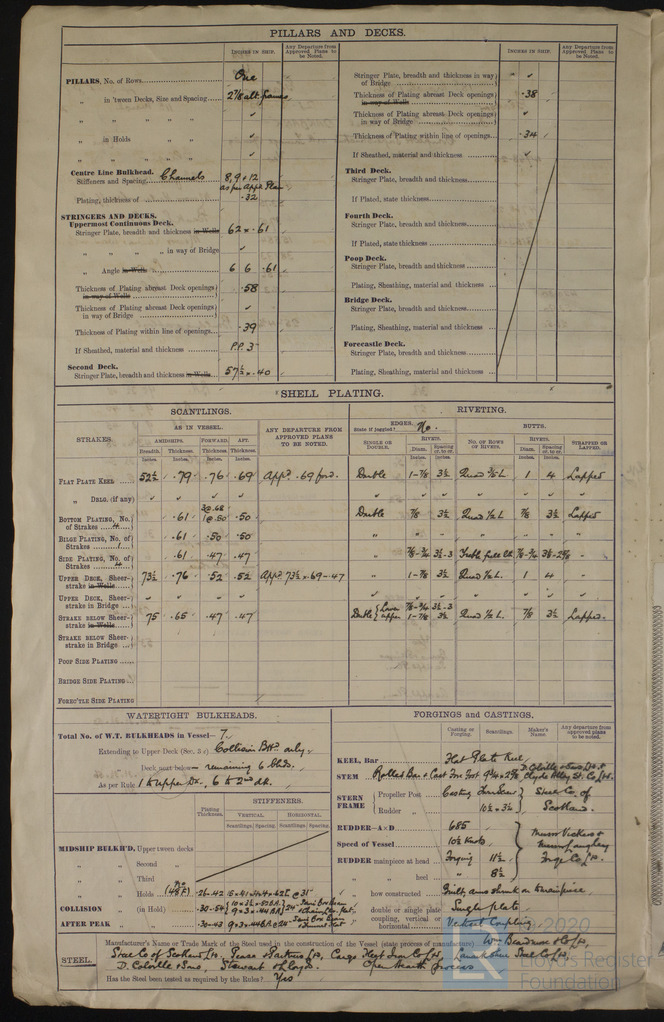 PILLARS AND DECKS.
INCHES IN SHIP.
Any Departure from Approved Plans to be Noted.
PILLARS, No. of Rows One
„ in 'tween Decks, Size and Spacing 2⅞ alt. frames
„ „ „ „ „ ✓
„ in Holds „ „ ✓
„ „ „ „ ✓
Centre Line Bulkhead. Channels
Stiffeners and Spacing 8, 9 & 12
as per App. Plan
Plating, thickness of .32
STRINGERS AND DECKS.
Uppermost Continuous Deck.
Stringer Plate, breadth and thickness in Wells 62 × .61
„ „ „ „ in way of Bridge ✓
„ Angle in Wells 6 6 .61
Thickness of Plating abreast Deck openings in way of Wells .58
Thickness of Plating abreast Deck openings in way of Bridge ✓
Thickness of Plating within line of openings .39
If Sheathed, material and thickness P.P. 3"
Second Deck.
Stringer Plate, breadth and thickness in Wells 57½ × .40
INCHES IN SHIP.
Any Departure from Approved Plans to be Noted.
Stringer Plate, breadth and thickness in way of Bridge ✓
Thickness of Plating abreast Deck openings in way of Wells .38
Thickness of Plating abreast Deck openings in way of Bridge ✓
Thickness of Plating within line of openings .34
If Sheathed, material and thickness ✓
Third Deck.
Stringer Plate, breadth and thickness
If Plated, state thickness
Fourth Deck.
Stringer Plate, breadth and thickness
If Plated, state thickness
Poop Deck.
Stringer Plate, breadth and thickness
Plating, Sheathing, material and thickness
Bridge Deck.
Stringer Plate, breadth and thickness
Plating, Sheathing, material and thickness
Forecastle Deck.
Stringer Plate, breadth and thickness
Plating, Sheathing, material and thickness
SHELL PLATING.
SCANTLINGS.
RIVETING.
STRAKES.
AS IN VESSEL.
AMIDSHIPS. FORWARD. AFT.
Breadth. Thickness. Thickness. Thickness.
Inches. Inches. Inches. Inches.
ANY DEPARTURE FROM APPROVED PLANS TO BE NOTED.
EDGES. State if joggled? No.
SINGLE OR DOUBLE.
RIVETS.
Diam. Spacing cr. to cr.
Inches. Inches.
BUTTS.
NO. OF ROWS OF RIVETS.
RIVETS.
Diam. Spacing cr. to cr.
Inches. Inches.
STRAPPED OR LAPPED.
FLAT PLATE KEEL 52½ .79 .76 .69 App. .69 ford. Double 1-⅞ 3½ Quad ½ L 1 4 Lapped
„ DBLG. (if any) ✓ ✓ ✓ ✓
BOTTOM PLATING, No. of Strakes 4 .61 3@.68 1@.50 .50 Double ⅞ 3½ Quad ½ L ⅞ 3½ Lapped
BILGE PLATING, No. of Strakes 1 .61 .50 .50
SIDE PLATING, No. of Strakes 4 .61 .47 .47 „ ⅞-¾ 3½-3
UPPER DECK, Sheer-strake in Wells 73½ .76 .52 .52 App. 73½ × .69-.47 „ 1-⅞ 3½ Quad ½ L. 1 4
UPPER DECK, Sheer-strake in Bridge ✓ ✓ ✓ ✓
STRAKE BELOW Sheer-strake in Wells 75 .65 .47 .47 Double Lower ⅞-¾ 3½-3 upper 1-⅞ 3½ Quad ½ L. ⅞ 3½ Lapped.
STRAKE BELOW Sheer-strake in Bridge
POOP SIDE PLATING
BRIDGE SIDE PLATING
FORE'C'TLE SIDE PLATING
WATERTIGHT BULKHEADS.
Total No. of W.T. BULKHEADS in Vessel— 7
Extending to Upper Deck (Sec. 3 c) Collision Bhd only
Deck next below— remaining 6 bhds.
As per Rule 1 to upper Dk., 6 to 2nd dk.
Plating Thickness.
STIFFENERS.
VERTICAL HORIZONTAL
Scantlings. Spacing. Scantlings. Spacing.
MIDSHIP BULK'D, Upper tween decks
„ „ Second „
„ „ Third „
„ „ Holds .26-.42
COLLISION „ (in Hold) .30-.54
AFTER PEAK „ „ .30-.43
FORGINGS AND CASTINGS.
Casting or Forging. Scantlings. Maker's Name. Any departure from approved plans to be noted.
KEEL, Bar Flat Plate Keel
STEM Rolled Bar & Cast Fore Foot D. Colville & Sons Ld. & Clyde Alloy St. Co. Ld.
STERN FRAME Propeller Post Casting Steel Co. of
Rudder „ 10½ × 3½ Scotland.
RUDDER—A×D 685
Speed of Vessel 10½ Knots
RUDDER mainpiece at head Forging 11½
„ „ heel „ 8½
„ how constructed Built, arms shrunk on mainpiece
„ double or single plate Single plate
„ coupling, vertical or horizontal Vertical Coupling
STEEL. Manufacturer's Name or Trade Mark of the Steel used in the construction of the Vessel (state process of manufacture) Wm. Beardmore & Co. Ld,
Steel Co. of Scotland Ld, Pease & Partners Ld, Cargo Fleet Iron Co. Ld, Lanarkshire Steel Co. Ld,
D. Colville & Sons, Stewart & Lloyds. Open Hearth process
Has the Steel been tested as required by the Rules? Yes
© 2020
LR
Lloyd's Register
Foundation